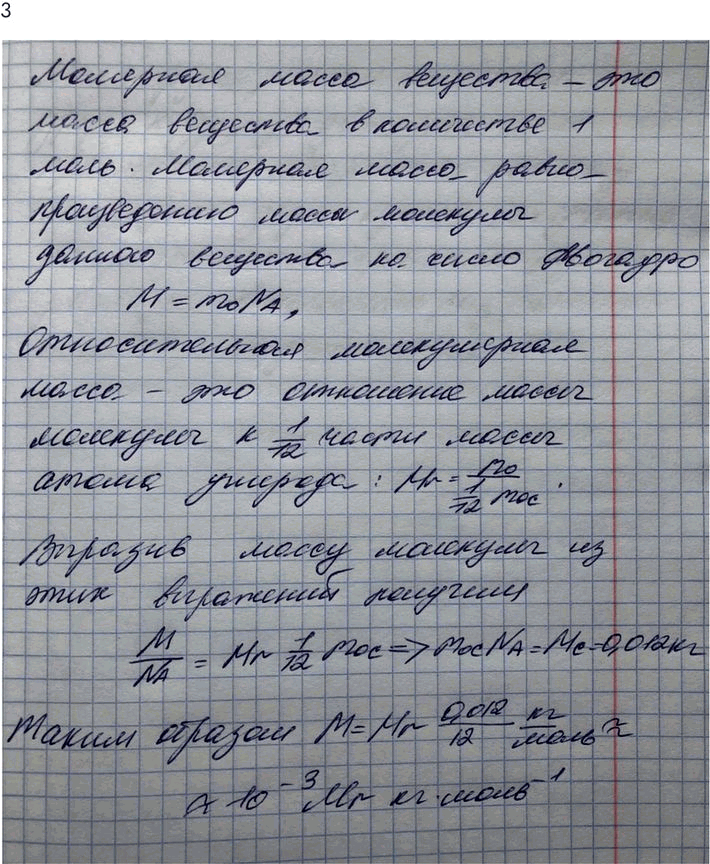 3
Молярная масса вещества – это
масса вещества в количестве 1
моль. Молярная масса равна
произведению массы молекулы
данного вещества на число Авогадро
M = m₀Nₐ,
Относительная молекулярная
масса – это отношение массы
молекулы к 1/12 части массы
атома углерода: Mr = m₀/(1/12 m₀c).
Выразив массу молекулы из
этих выражений получим
M/Nₐ = Mr 1/12 m₀c => m₀cNₐ = Mc = 0,012кг
Таким образом M = Mr 0,012/12 кг/моль ≈
≈ 10⁻³ Mr кг·моль⁻¹